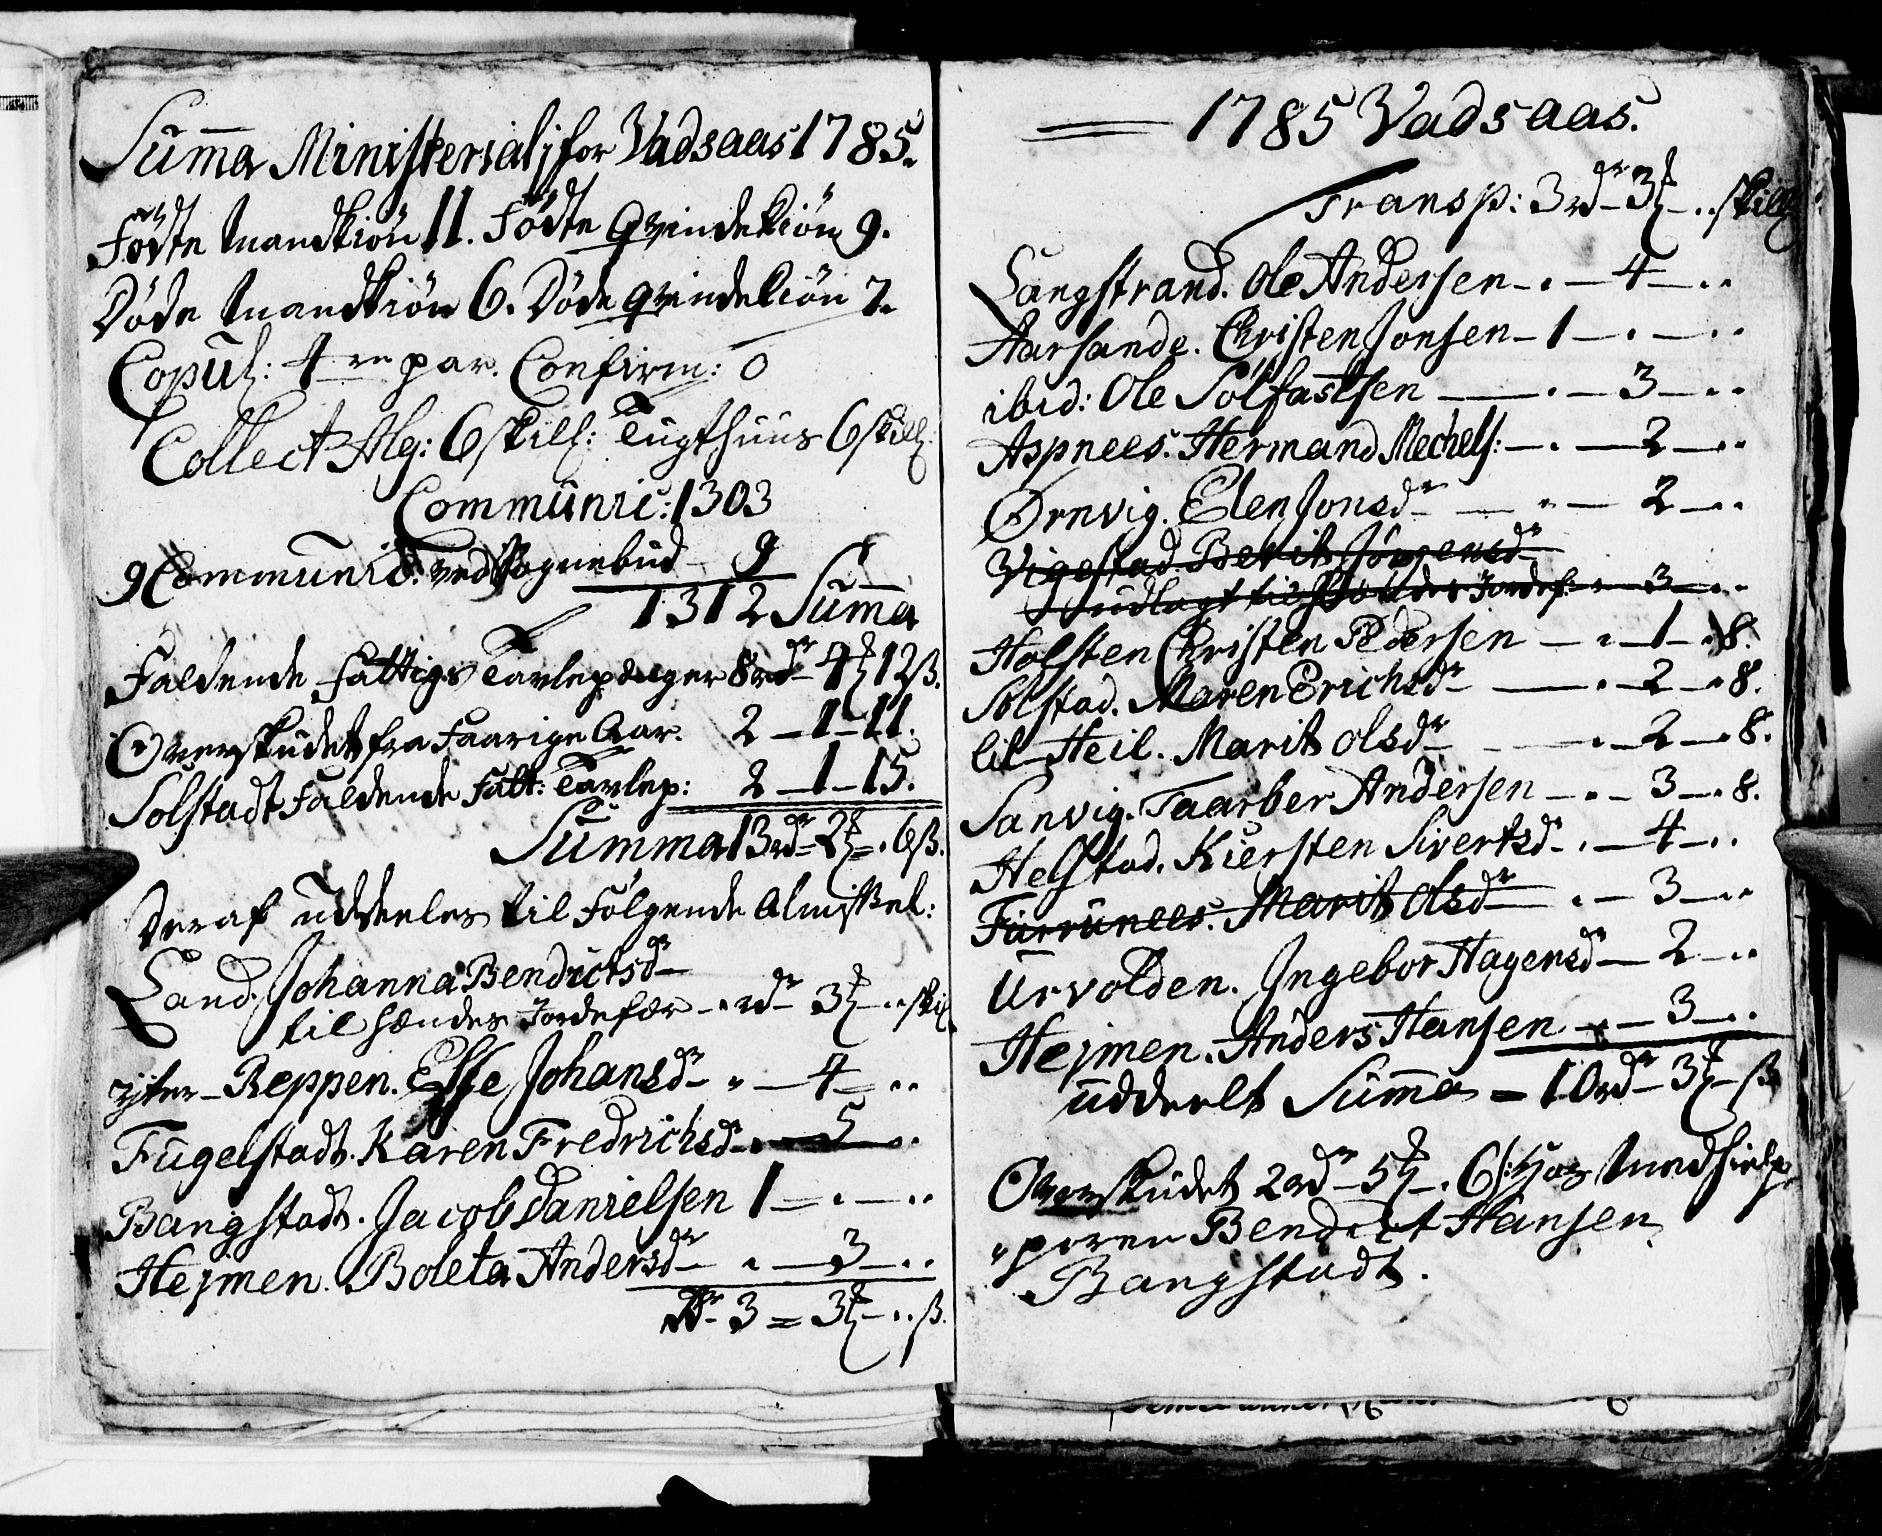 Summa Ministerialj for Vadsaas 1785.
Födte Mandkiön 11. Födte Qvindekiön 9.
Döde Mandkiön 6. Döde Qvindekiön 7.
Copul: 4re par. Confirm: 0
Collect Alg: 6 skill: Tugthuus 6 skill:
Communic: 1303
9 Communic: ved Sognebud 9
1312 Summa
Faldende Fattiges Tavlepenger 8rdr 4ɱ 12ß.
Overskudet fra Faarige Aar. 2 – 1 – 11.
Solstadt Faldende Fatt: Tavlep: 2 – 1 – 15.
Summa 13rdr 2ɱ . 6ß.
Deraf uddeeles til Følgende Almisse:
Land. Johanna Bendictsdr
til hændes Jordefær – . rdr 3ɱ – .. skil
ytter – Reppen. Elsse Johansdr – . – 4 – ..
Fugelstadt. Karen Fredrichsdr – . – 5 – ..
Bangstadt. Jacob Danielsen 1 – . – ..
Hejmen. Boleta Andersdr . – 3 – ..
Rdr 3 = 3ɱ – .. ß.
1785 Vadsaas.
Transp: 3rdr – 3ɱ – .. skill:
Langstrand. Ole Andersen – . – 4 – ..
Aarsande. Christen Jonsen – 1 – . – ..
ibid: Ole Solfastsen – . – 3 – ..
Aspnees. Hermand Mechels: – . – 2 – ..
Ørnvig. Elen Jonsdr – . – 2 – ..
Vigestad. Berit Jørgensdr
udlagt til Jordef: . – 3 – ..
Holsten Christen Pedersen – . – 1 – . 8.
Solstad. Maren Erichsdr – . – 2 – . 8.
lil – Heil. Marit olsdr – . – 2 – . 8.
Sanvig. Taarber Andersen – . – 3 – . 8.
Helstad. Kiersten Sivertsdr – . – 4 – ..
Furrunees. Marit olsdr . – 3 – ..
Urvolden. Ingebor Hagensdr – 2 – ..
Hejmen. Anders Hansen – . – 3 – ..
uddeelt Summa = 10rdr – 3ɱ – ß
Overskudet 2rdr – 5ɱ – . 6ß: hos Medhielp
Bendict Hansen
Bangstadt.